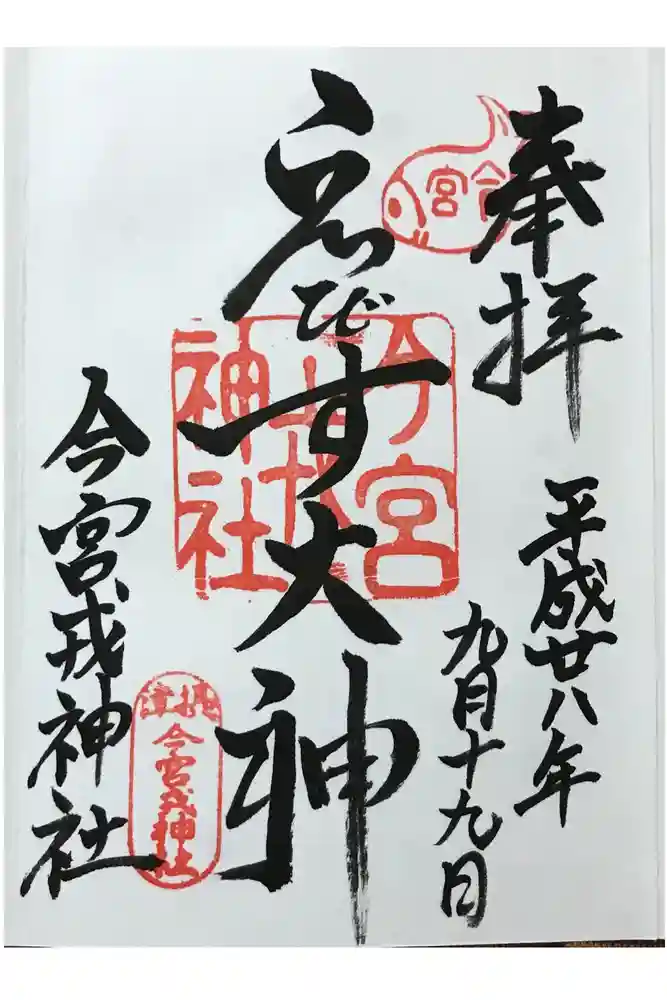 奉拝
今宮
平成廿八年
九月十九日
ゑびす大神
今宮
戎
神社
今宮戎神社
摂津
今宮戎神社